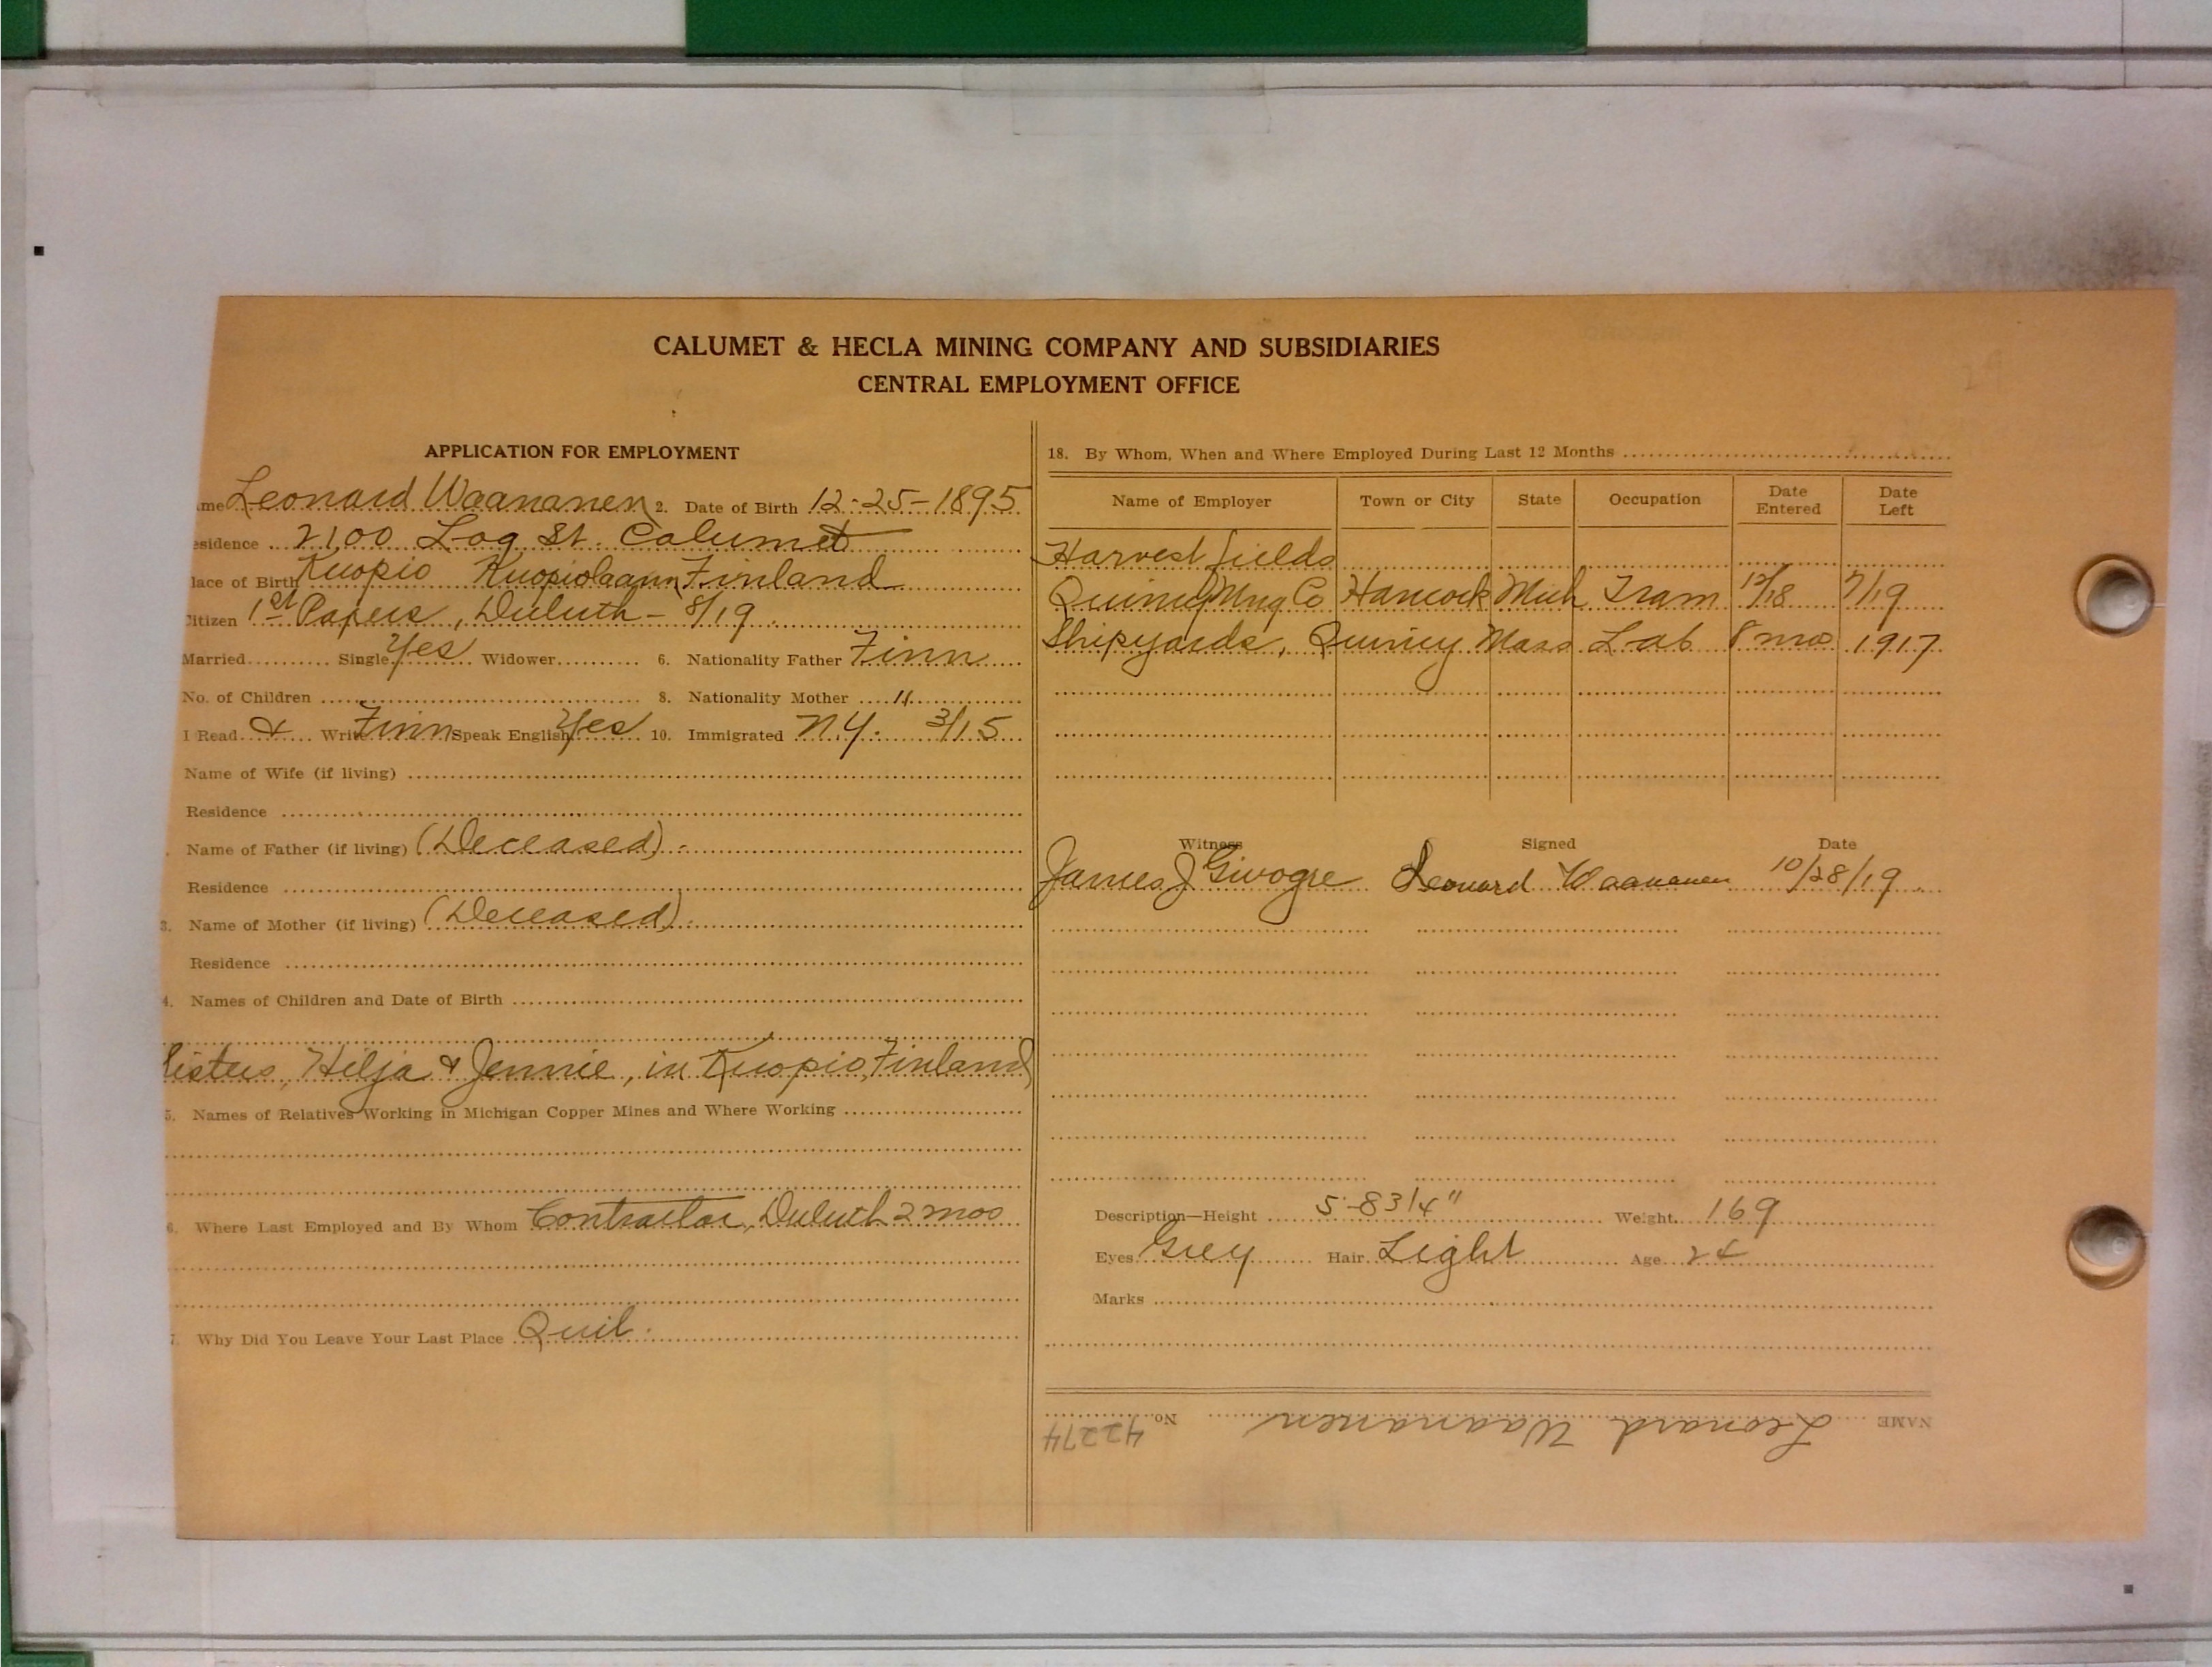 CALUMET & HECLA MINING COMPANY AND SUBSIDIARIES
CENTRAL EMPLOYMENT OFFICE
APPLICATION FOR EMPLOYMENT
ame Leonard Waananen 2. Date of Birth 12-25-1895
esidence 2100 Log St. Calumet
lace of Birth Kuopio Kuopiolaani Finland
Citizen 1st Papers, Duluth - 8/19
Married Single Yes Widower 6. Nationality Father Finn
No. of Children 8. Nationality Mother "
I Read & Write Finn Speak English Yes 10. Immigrated N.Y. 3/15
Name of Wife (if living)
Residence
Name of Father (if living) (Deceased).
Residence
3. Name of Mother (if living) (Deceased).
Residence
4. Names of Children and Date of Birth
Sisters, Hilja & Jennie, in Kuopio, Finland
5. Names of Relatives Working in Michigan Copper Mines and Where Working
6. Where Last Employed and By Whom Contractor, Duluth 2 mos
7. Why Did You Leave Your Last Place Quit.
18. By Whom, When and Where Employed During Last 12 Months
Name of Employer Town or City State Occupation Date Entered Date Left
Harvest fields
Quincy Mng Co Hancock Mich Tram 12/18 7/19
Shipyards, Quincy Mass Lab 8 mos 1917
Witness Signed Date
James J Givogre Leonard Waananen 10/28/19
Description—Height 5'-8 3/4" Weight 169
Eyes Grey Hair Light Age 24
Marks
NAME Leonard Waananen No. 42274